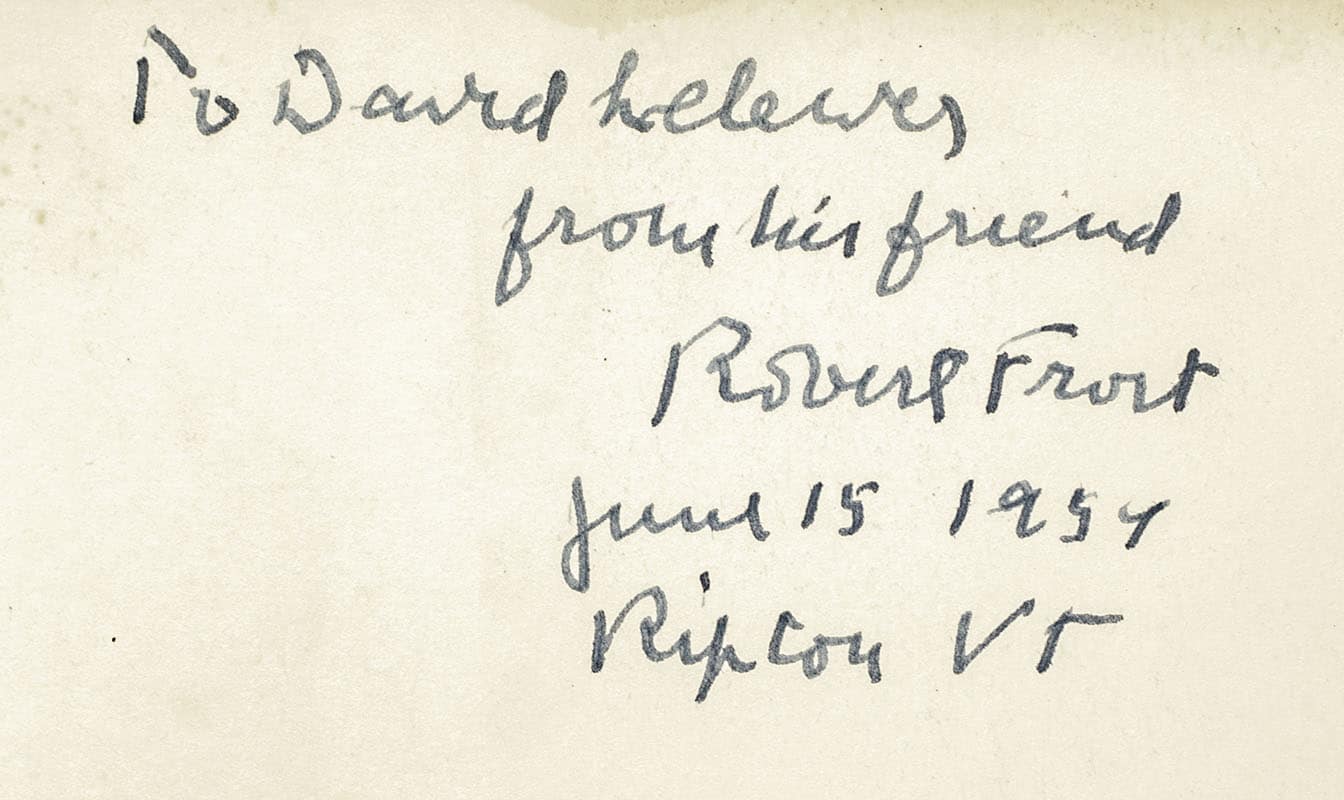 To David
from his friend
Robert Frost
June 15 1954
Ripton VT